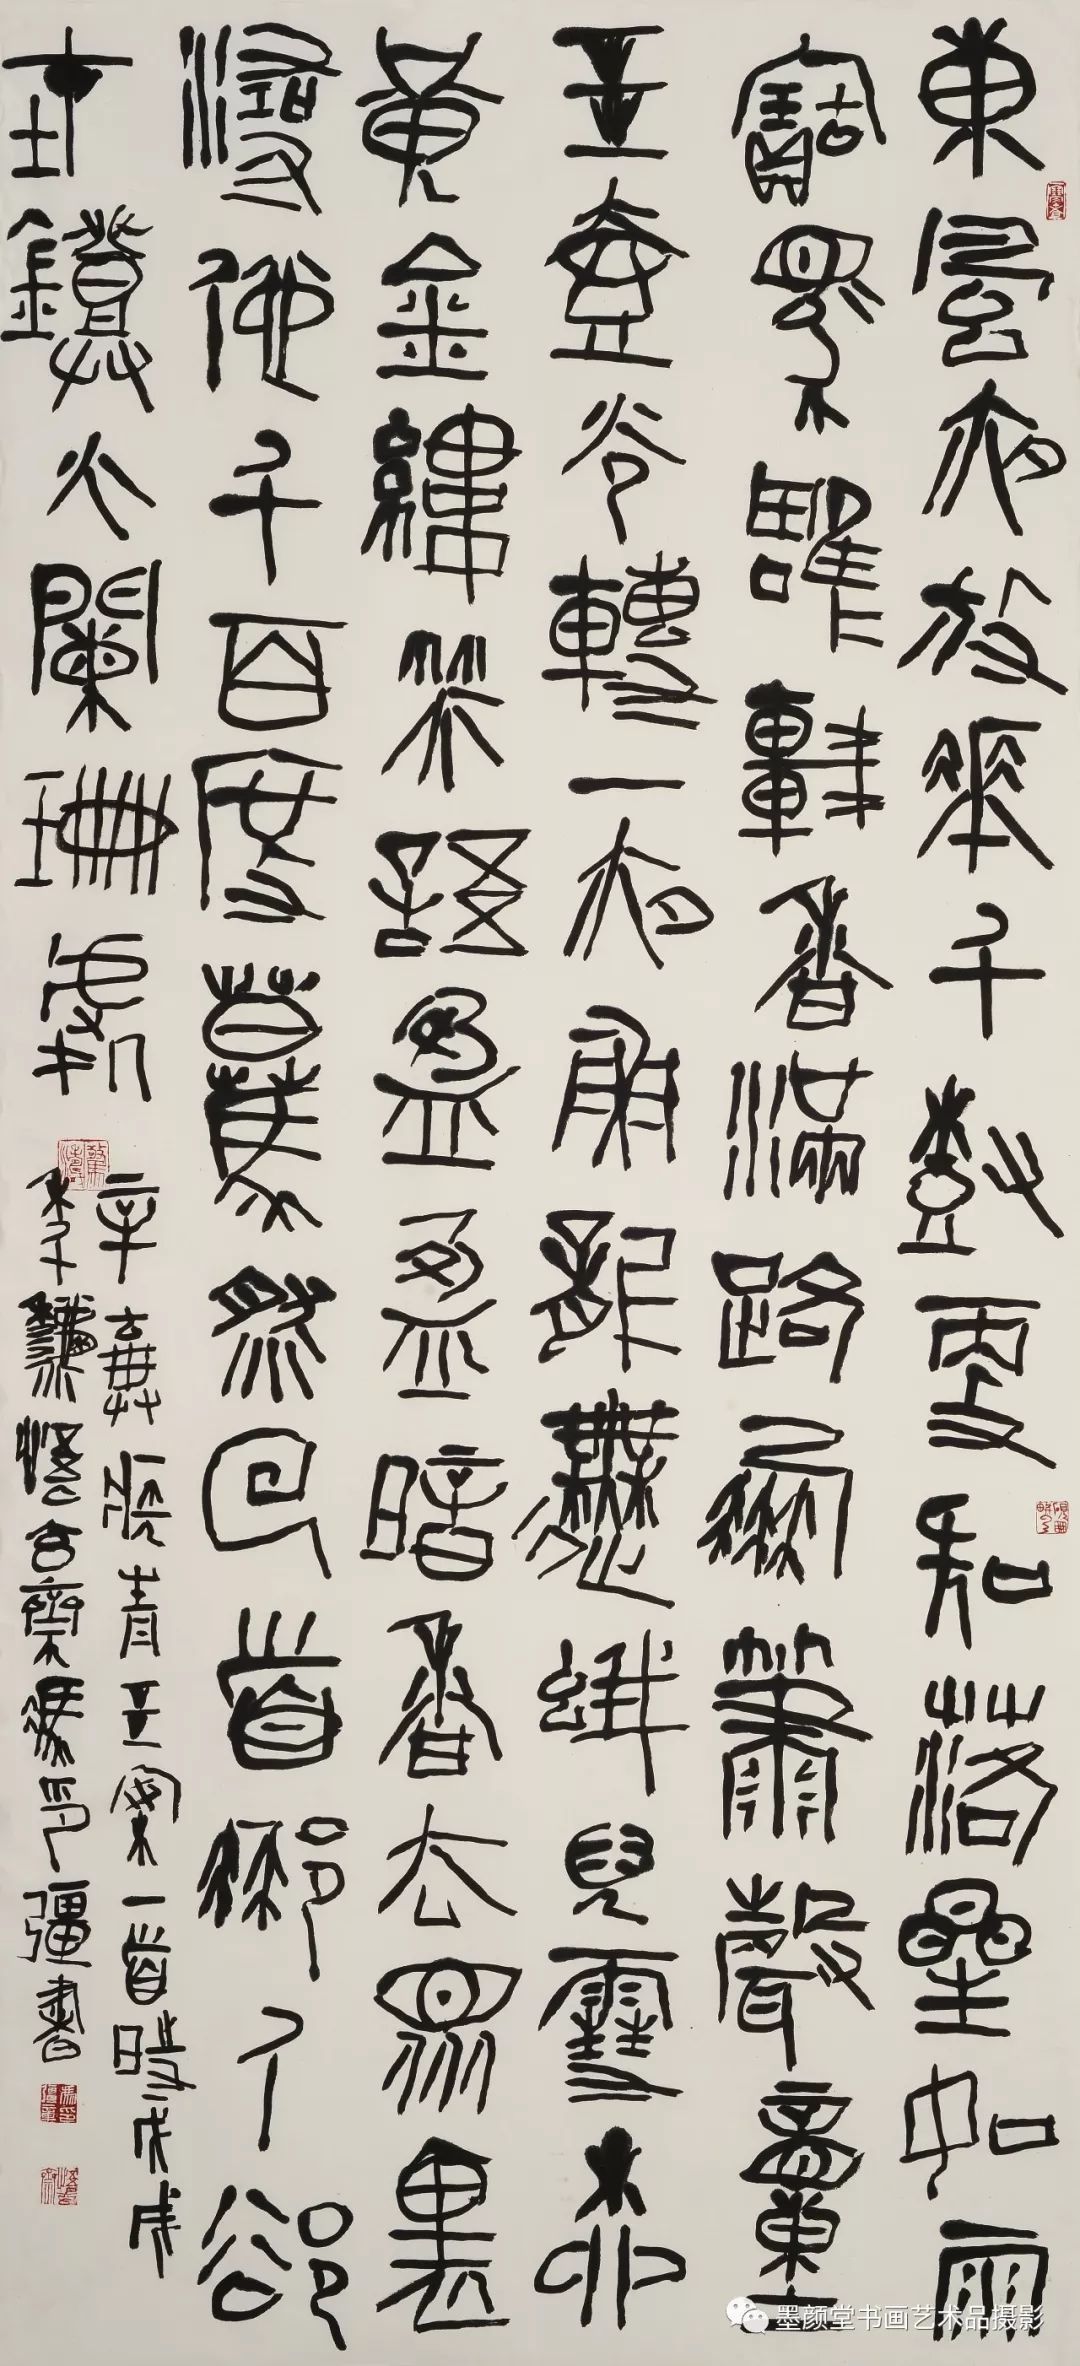 東風夜放華千樹更吹落星如雨
寶馬雕車香滿路鳳簫聲動
玉壺光轉一夜魚龍舞蛾兒雪柳
黃金縷笑語盈盈暗香去眾裏
尋他千百度驀然回首那人卻
在燈火闌珊處
辛棄疾青玉案一首時戊戌
季秋 齋馮印強書
墨颜堂书画艺术品摄影